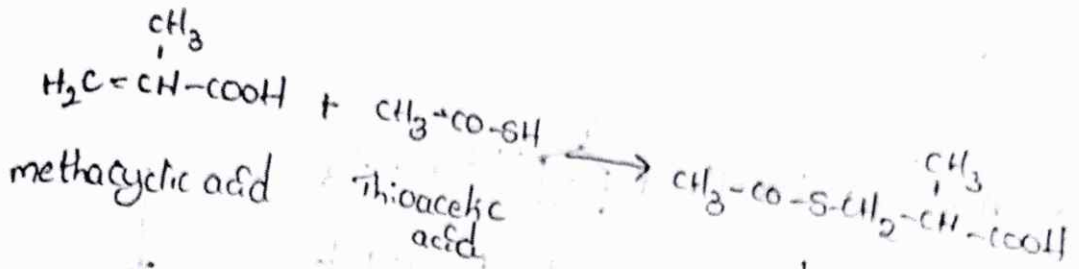 CH₃
H₂C=CH-COOH + CH₃-CO-SH → CH₃-CO-S-CH₂-CH-COOH
CH₃
methacyclic acid Thioacetic
acid